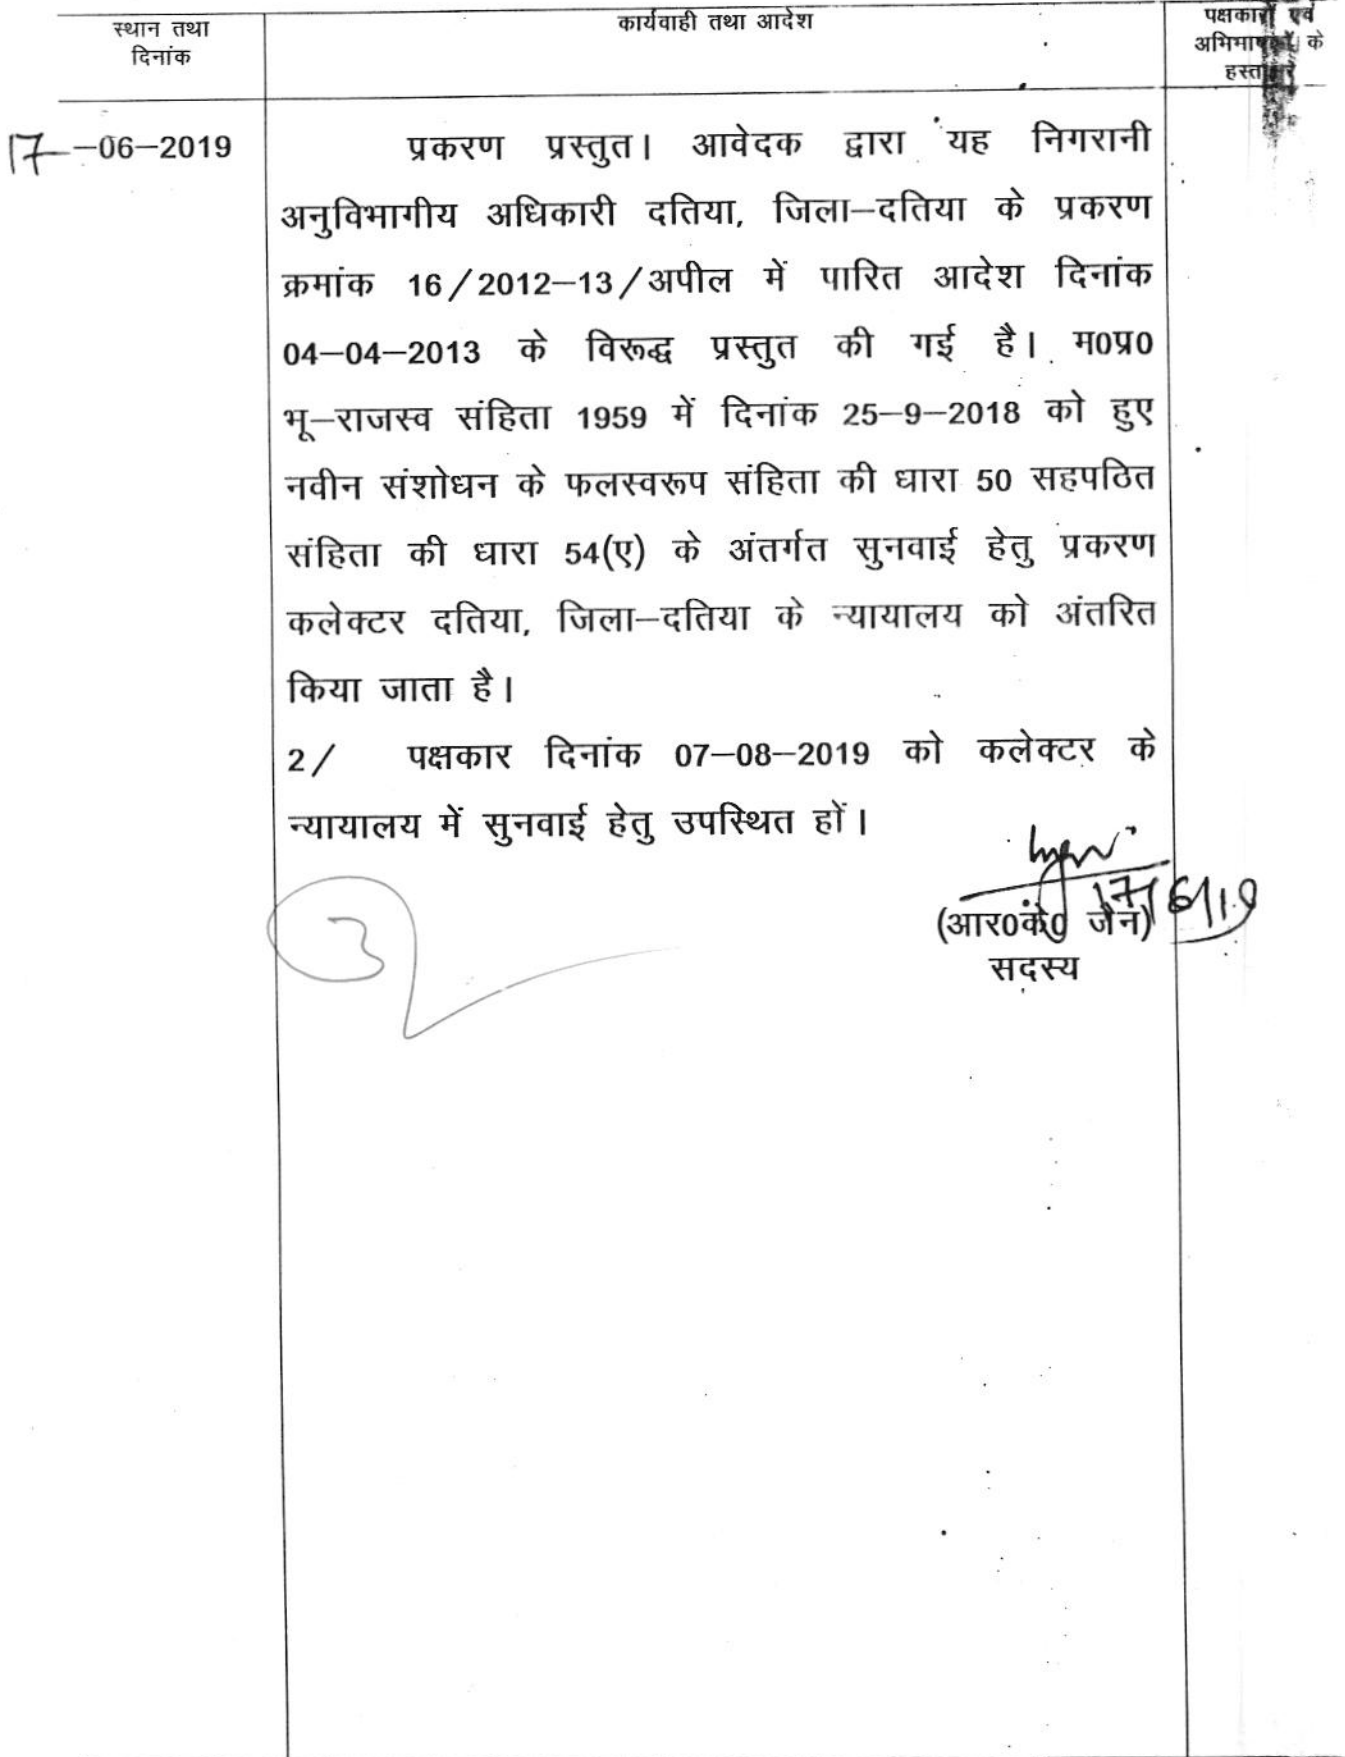 स्थान तथा
दिनांक
कार्यवाही तथा आदेश
पक्षकारों एवं
अभिभाषकों के
17-06-2019
प्रकरण प्रस्तुत। आवेदक द्वारा यह निगरानी
अनुविभागीय अधिकारी दतिया, जिला-दतिया के प्रकरण
क्रमांक 16/2012-13/अपील में पारित आदेश दिनांक
04-04-2013 के विरूद्ध प्रस्तुत की गई है। म0प्र0
भू-राजस्व संहिता 1959 में दिनांक 25-9-2018 को हुए
नवीन संशोधन के फलस्वरूप संहिता की धारा 50 सहपठित
संहिता की धारा 54(ए) के अंतर्गत सुनवाई हेतु प्रकरण
कलेक्टर दतिया, जिला-दतिया के न्यायालय को अंतरित
किया जाता है।
2/ पक्षकार दिनांक 07-08-2019 को कलेक्टर के
न्यायालय में सुनवाई हेतु उपस्थित हों।
17/6/19
(आर0के0 जैन)
सदस्य
3